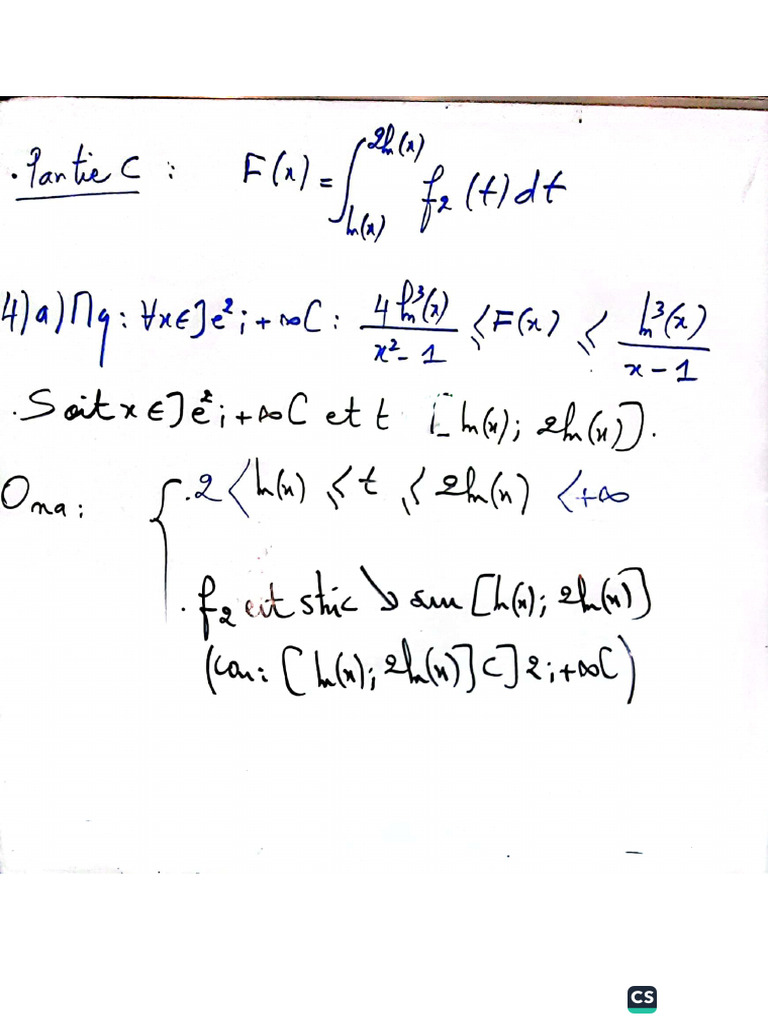 . Partie C : F(x) = ∫_{ln(x)}^{2ln(x)} f₂(t) dt
4) a) Mq : ∀x ∈ ]e²; +∞[ : 4 ln³(x) / (x² - 1) ⩽ F(x) ⩽ ln³(x) / (x - 1)
. Soit x ∈ ]e²; +∞[ et t [ln(x); 2ln(x)].
On a : { . 2 < ln(x) ⩽ t ⩽ 2ln(x) < +∞
. f₂ est stric ↘ sur [ln(x); 2ln(x)]
(car : [ln(x); 2ln(x)] ⊂ ]2; +∞[)
CS